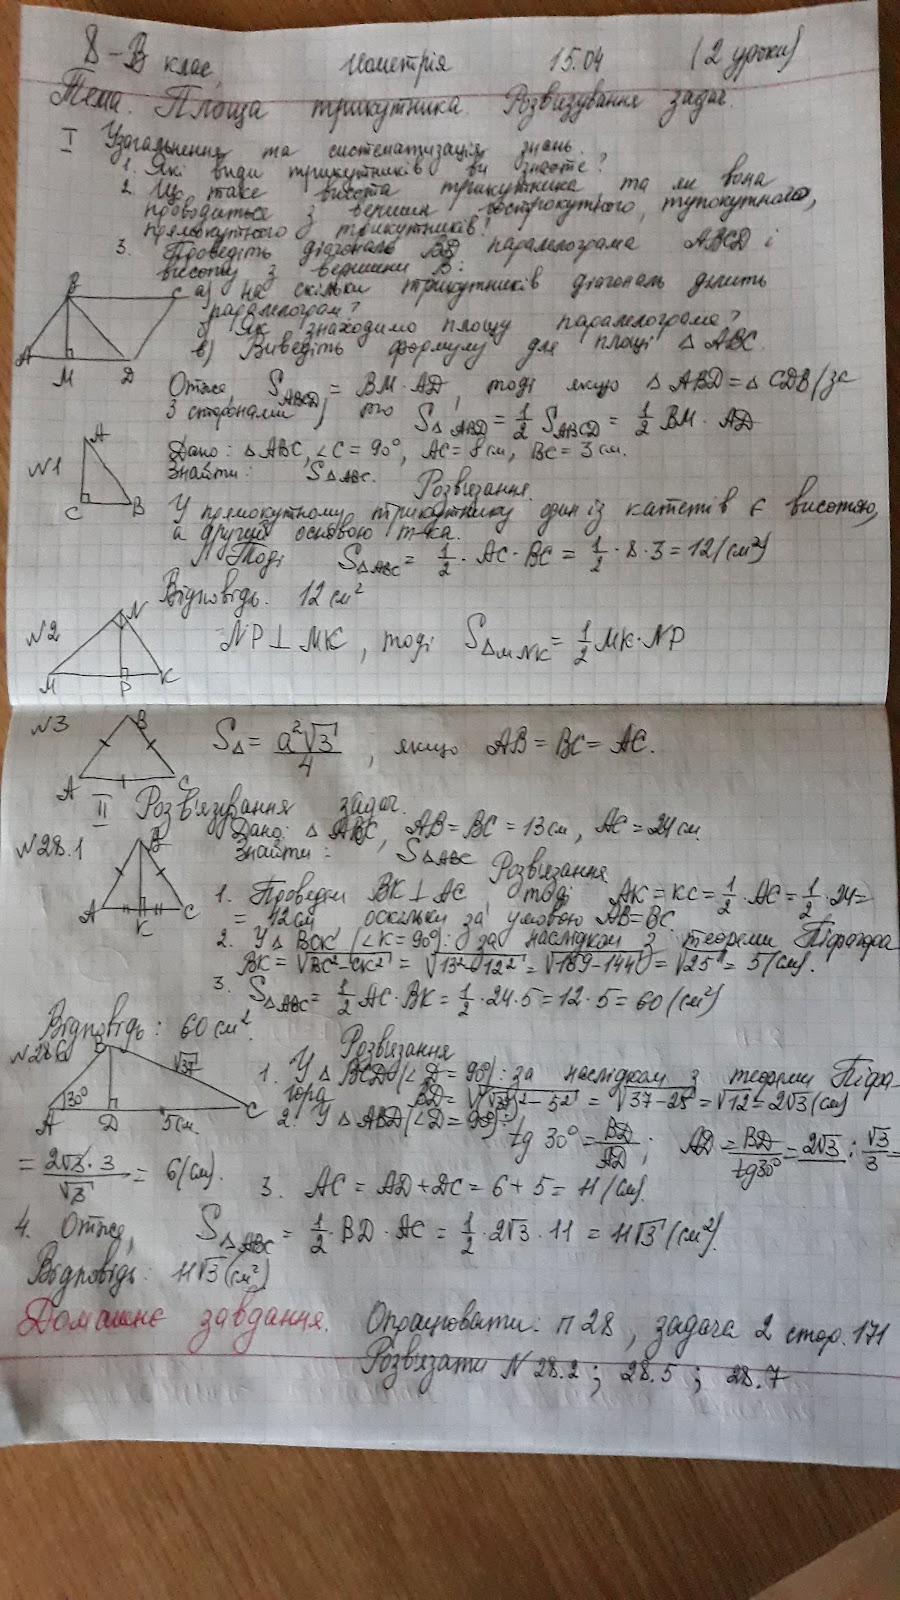 8-В клас геометрія 15.04 (2 уроки)
Тема. Площа трикутника. Розв'язування задач.
I Узагальнення та систематизація знань.
1. Які види трикутників ви знаєте?
2. Що таке висота трикутника та як вона
проводиться з вершин гострокутного, тупокутного,
прямокутного трикутників?
3. Проведіть діагональ BD паралелограма ABCD і
висоту з вершини B:
а) На скільки трикутників діагональ ділить
паралелограм?
б) Як знаходимо площу паралелограма?
в) Виведіть формулу для площі △ ABC.
B C
A M D
Отже S ABCD = BM · AD, тоді якщо △ ABD = △ CDB (за
3 сторонами), то S△ABD = 1/2 S ABCD = 1/2 BM · AD
N1 Дано: △ ABC, ∠C = 90°, AC = 8 см, BC = 3 см.
Знайти: S△ABC.
A
C B
Розв'язання.
У прямокутному трикутнику один із катетів є висотою,
а другий основою тр-ка.
Тоді S△ABC = 1/2 · AC · BC = 1/2 · 8 · 3 = 12 (см²)
Відповідь. 12 см²
N2 NP ⊥ MK, тоді S△MNK = 1/2 MK · NP
N
M P K
N3 S△ = a²√3/4, якщо AB = BC = AC.
B
A C
II Розв'язування задач.
N28.1 Дано: △ ABC, AB = BC = 13 см, AC = 24 см
Знайти: S△ABC
B
A K C
Розв'язання
1. Проведем BK ⊥ AC тоді AK = KC = 1/2 · AC = 1/2 · 24 =
= 12 см оскільки за умовою AB = BC
2. У △ BCK (∠K = 90°): за наслідком з теореми Піфагора
BK = √BC² - CK² = √13² - 12² = √169 - 144 = √25 = 5 (см).
3. S△ABC = 1/2 AC · BK = 1/2 · 24 · 5 = 12 · 5 = 60 (см²)
Відповідь: 60 см².
B √37
30°
A D 5 см C
Розв'язання
1. У △ BCD (∠D = 90°): за наслідком з теореми Піфа-
гора BD = √(√37)² - 5² = √37 - 25 = √12 = 2√3 (см)
2. У △ ABD (∠D = 90°):
tg 30° = BD/AD; AD = BD/tg30° = 2√3 : √3/3 =
= 2√3 · 3/√3 = 6 (см).
3. AC = AD + DC = 6 + 5 = 11 (см).
4. Отже, S△ABC = 1/2 · BD · AC = 1/2 · 2√3 · 11 = 11√3 (см²).
Відповідь: 11√3 (см²)
Домашнє завдання. Опрацювати: п 28, задача 2 стор. 171
Розв'язати N 28.2; 28.5; 28.7